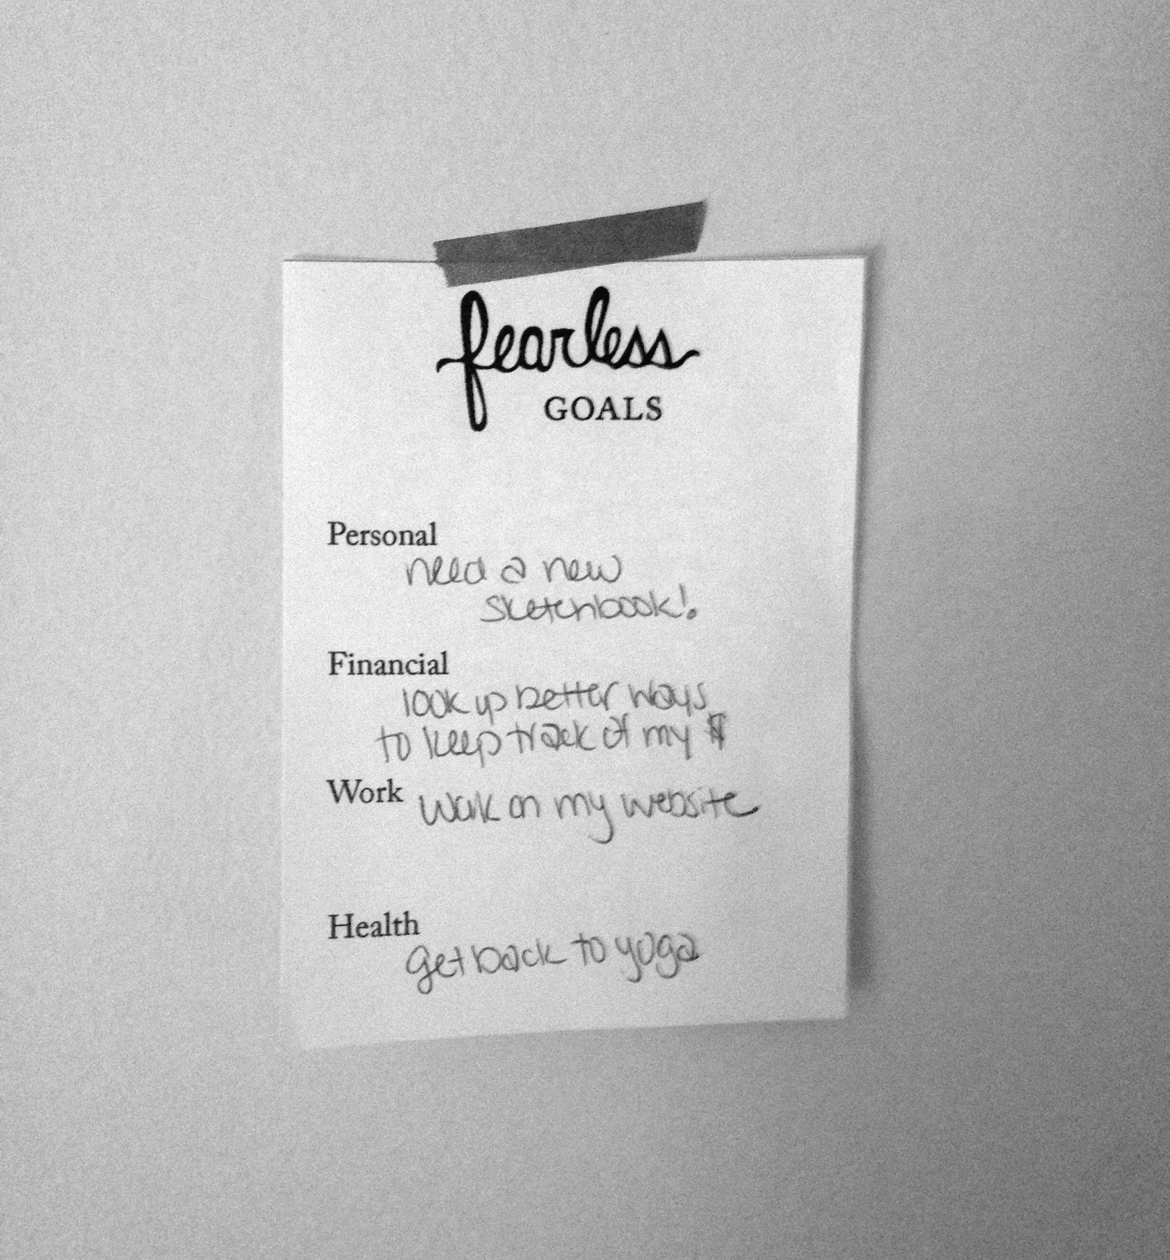 fearless
GOALS
Personal
need a new
sketchbook!
Financial
look up better ways
to keep track of my $
Work work on my website
Health
get back to yoga